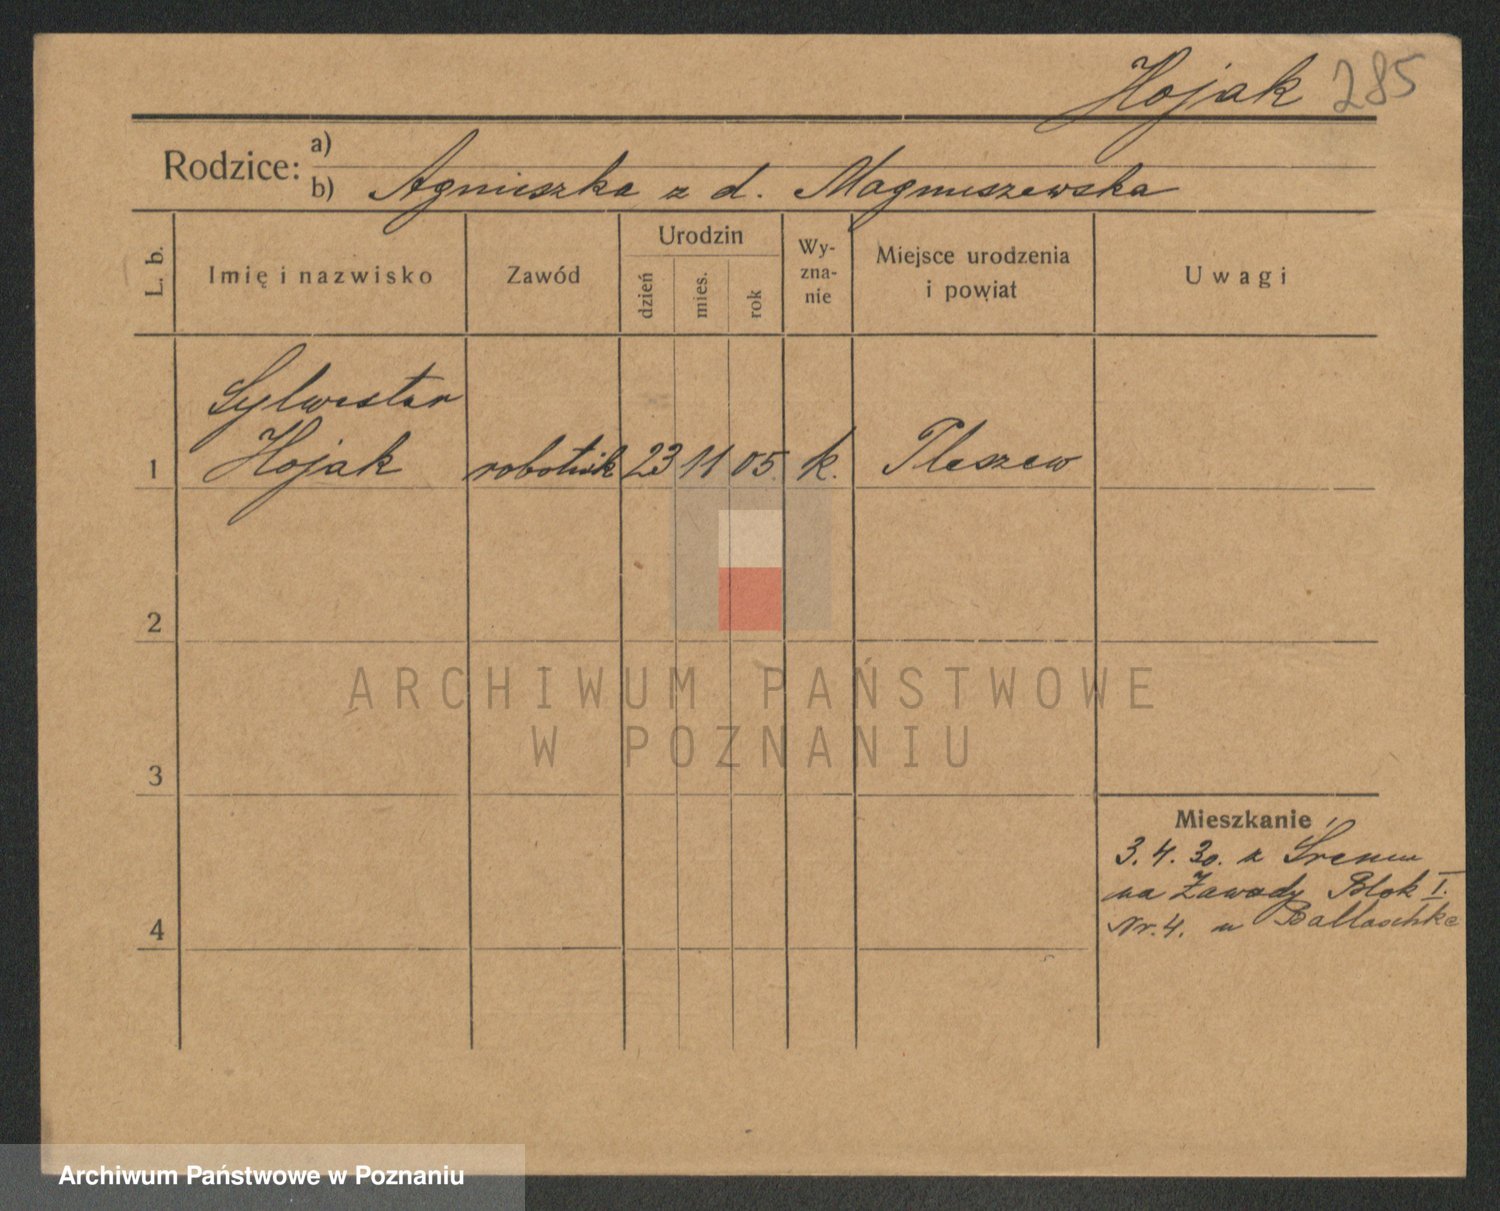 Hojak 285
Rodzice: a)
b) Agnieszka z d. Magnuszewska
L. b. Imię i nazwisko Zawód Urodzin dzień mies. rok Wy-zna-nie Miejsce urodzenia i powiat Uwagi
Sylwester
1 Hojak robotnik 23 11 05. k. Pleszew
2
ARCHIWUM PAŃSTWOWE
W POZNANIU
3
Mieszkanie
3.4.30. z Śremu
na Zawady Blok I.
4 Nr. 4. u Ballaschke
Archiwum Państwowe w Poznaniu